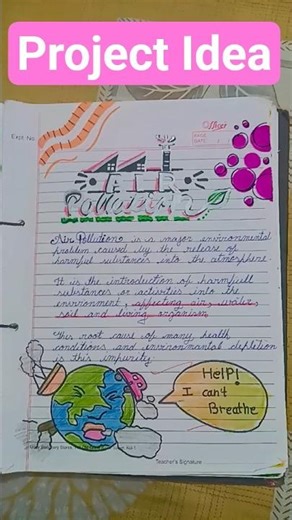 Project Idea
Expt. No.
PAGE
DATE
AIR
Pollution
Air Pollution is a major environmental
problem caused by the release of
harmful substances into the atmosphere.
It is the introduction of harmfull
substances or activities into the
environment, affecting air, water,
soil and living organism
This root cause of many health
conditions and environmental depletion
is this impurity.
HELP!
I can't
Breathe
Teacher's Signature